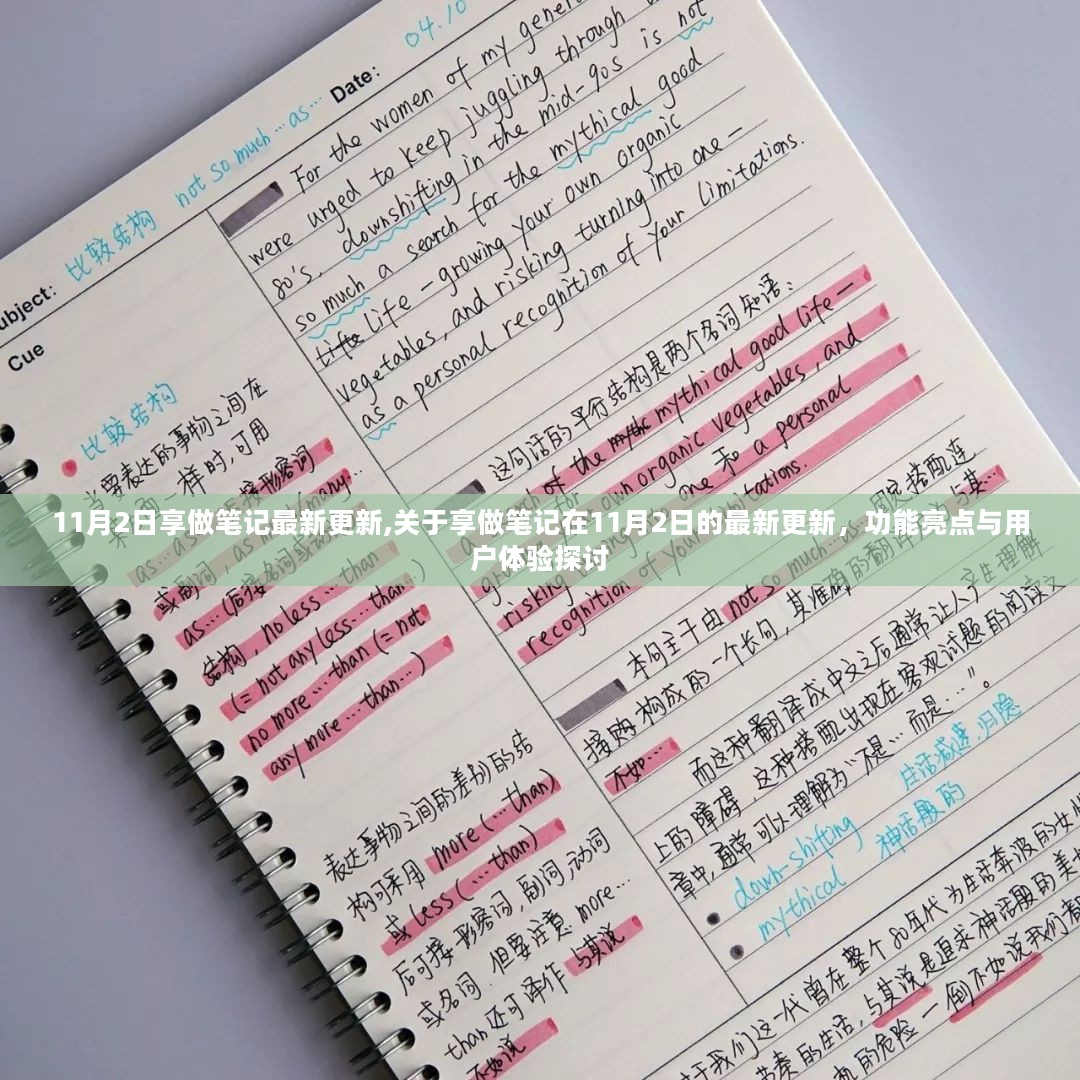 04.10
Date:
ubject: 比较结构 not so much…as…
Cue
For the women of my genera
were urged to keep juggling through
80's, downshifting in the mid-90s is not
so much a search for the mythical good
life – growing your own organic
vegetables, and risking turning into one –
as a personal recognition of your limitations.
比较结构
当要表达的事物之间在
一样时,可用
接形容词
as…
或副词
as…(后接名词
结构, no less…than
(= not any less…than…)
no more…than (= not
any more…than…)
表达事物之间的差别的结
构可采用 more (…than)
或 less (…than)
后可接形容词, 副词, 动词
或名词. 但要注意 more…
than 还可译作 与其说
不如说
这句话的平行结构是两个名词短语:
of the mythical good life –
own organic vegetables, and
one 和 a personal
limitations.
11月2日享做笔记最新更新,关于享做笔记在11月2日的最新更新，功能亮点与用
户体验探讨
risking
recognition of your
本句主干由 not so much…
构成的一个长句, 其准确的翻译
不如…
而这种翻译成中文之后通常让人产生理解
上的障碍, 这种搭配出现在客观试题的阅读文
章中, 通常可以理解为"不是…而是…"。
down-shifting 生活减速,归隐
mythical 神话般的
于我们这一代曾在整个80年代为生活奔波的女性
节奏的生活, 与其说是追求神话般的美好
的危险 – 倒不如说我们